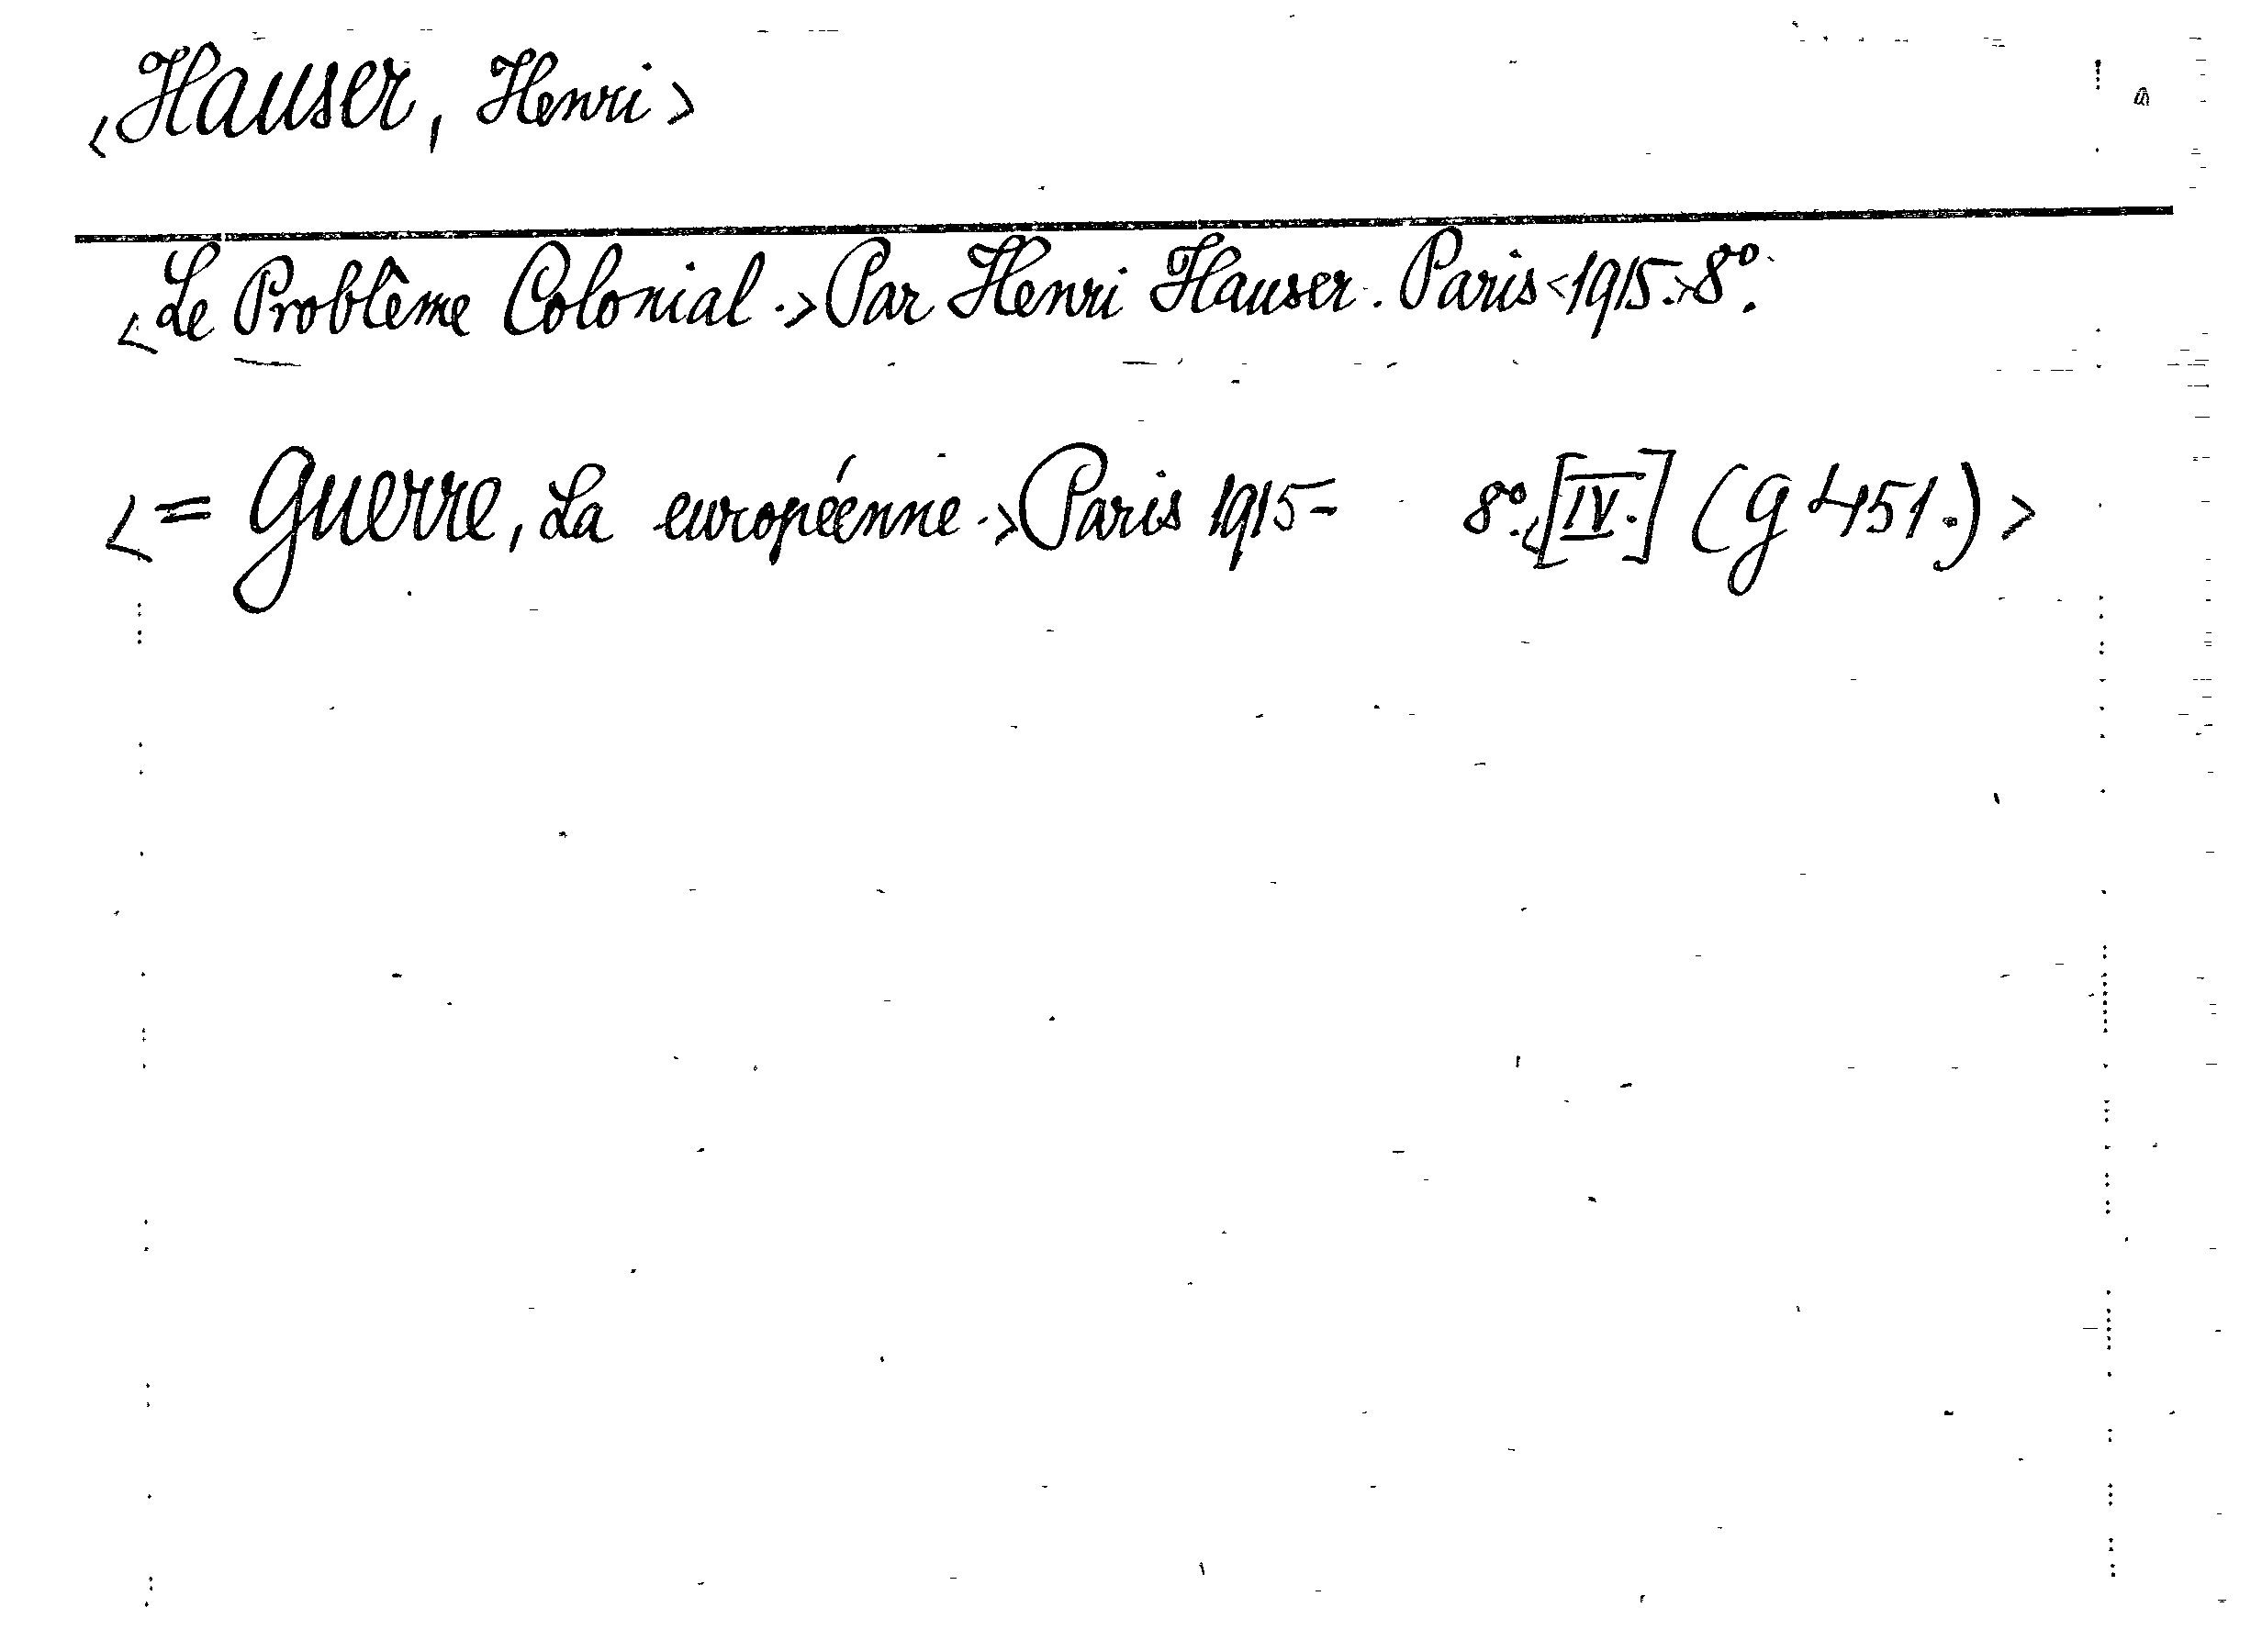 <Hauser, Henri>
<Le Problême Colonial.> Par Henri Hauser. Paris <1915.> 8º.
<= Guerre, La européenne.> Paris 1915- 8º. <[IV.] (G 451.)>